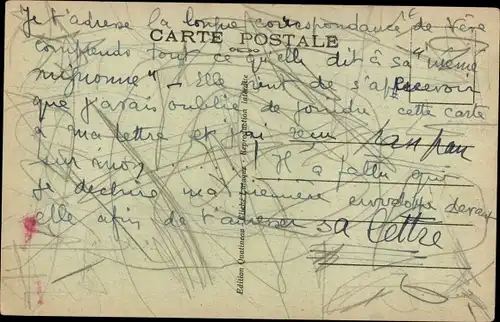 Je t'adresse la longue correspondance de Mère
CARTE POSTALE
comprends tout ce qu'elle dit à sa "mémé
mignonne" - Elle vient de s'apercevoir
que j'avais oublié de joindre cette carte
à ma lettre et j'ai reçu pan pan
sur moy ..... ! Il a fallu que
je déchire ma première enveloppe devant
elle afin de t'adresser sa lettre
Edition Quatineau Cliché Lavoyer - Reproduction Interdite